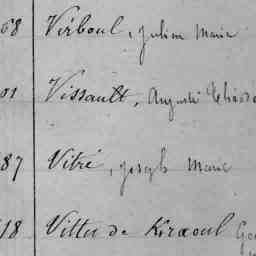 68 Virboul, Julien Marie
01 Vissault, Auguste
87 Vitré, Joseph Marie
18 Vittu de Kiraoul